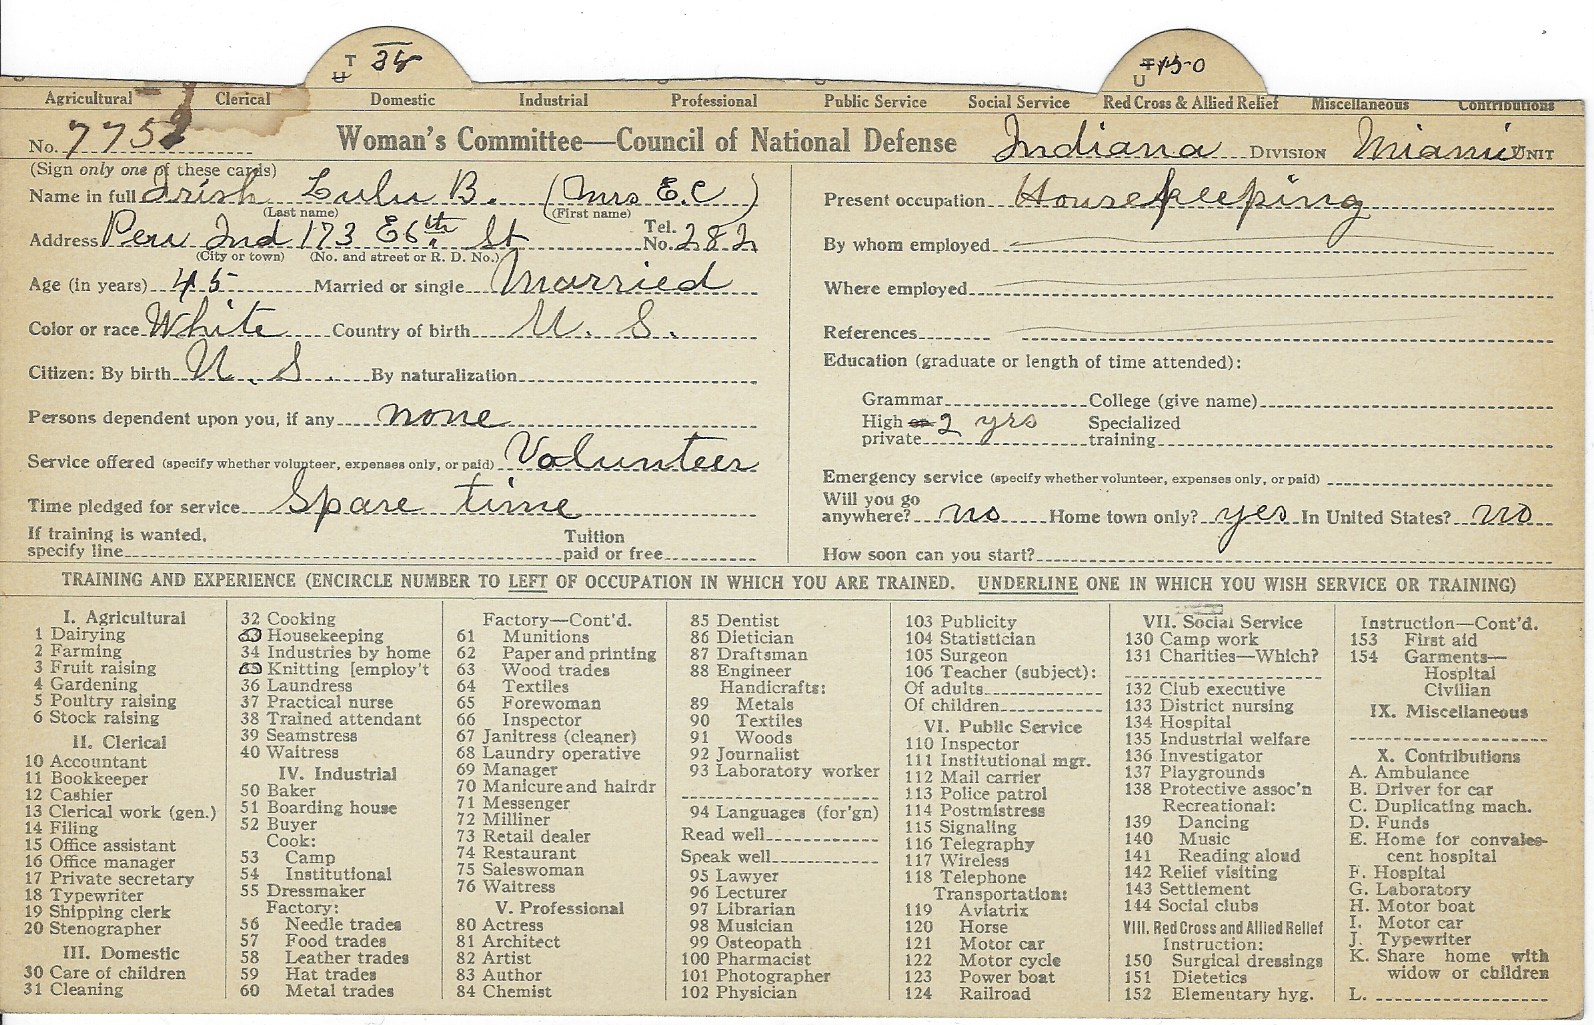 T
U 35
T 150
U
Agricultural Clerical Domestic Industrial Professional Public Service Social Service Red Cross & Allied Relief Miscellaneous Contributions
No. 7752 Woman's Committee—Council of National Defense Indiana DIVISION Miami UNIT
(Sign only one of these cards)
Name in full Irish Lulu B. (Mrs E.C)
(Last name) (First name)
Address Peru Ind 173 E 6th St Tel. No. 282
(City or town) (No. and street or R. D. No.)
Age (in years) 45 Married or single Married
Color or race White Country of birth U. S.
Citizen: By birth U. S. By naturalization
Persons dependent upon you, if any none
Service offered (specify whether volunteer, expenses only, or paid) Volunteer
Time pledged for service Spare time
If training is wanted, specify line Tuition paid or free
Present occupation Housekeeping
By whom employed
Where employed
References
Education (graduate or length of time attended):
Grammar College (give name)
High or private 2 yrs Specialized training
Emergency service (specify whether volunteer, expenses only, or paid)
Will you go anywhere? no Home town only? yes In United States? no
How soon can you start?
TRAINING AND EXPERIENCE (ENCIRCLE NUMBER TO LEFT OF OCCUPATION IN WHICH YOU ARE TRAINED. UNDERLINE ONE IN WHICH YOU WISH SERVICE OR TRAINING)
I. Agricultural
1 Dairying
2 Farming
3 Fruit raising
4 Gardening
5 Poultry raising
6 Stock raising
II. Clerical
10 Accountant
11 Bookkeeper
12 Cashier
13 Clerical work (gen.)
14 Filing
15 Office assistant
16 Office manager
17 Private secretary
18 Typewriter
19 Shipping clerk
20 Stenographer
III. Domestic
30 Care of children
31 Cleaning
32 Cooking
33 Housekeeping
34 Industries by home
35 Knitting [employ't
36 Laundress
37 Practical nurse
38 Trained attendant
39 Seamstress
40 Waitress
IV. Industrial
50 Baker
51 Boarding house
52 Buyer
Cook:
53 Camp
54 Institutional
55 Dressmaker
Factory:
56 Needle trades
57 Food trades
58 Leather trades
59 Hat trades
60 Metal trades
Factory—Cont'd.
61 Munitions
62 Paper and printing
63 Wood trades
64 Textiles
65 Forewoman
66 Inspector
67 Janitress (cleaner)
68 Laundry operative
69 Manager
70 Manicure and hairdr
71 Messenger
72 Milliner
73 Retail dealer
74 Restaurant
75 Saleswoman
76 Waitress
V. Professional
80 Actress
81 Architect
82 Artist
83 Author
84 Chemist
85 Dentist
86 Dietician
87 Draftsman
88 Engineer
Handicrafts:
89 Metals
90 Textiles
91 Woods
92 Journalist
93 Laboratory worker
94 Languages (for'gn)
Read well
Speak well
95 Lawyer
96 Lecturer
97 Librarian
98 Musician
99 Osteopath
100 Pharmacist
101 Photographer
102 Physician
103 Publicity
104 Statistician
105 Surgeon
106 Teacher (subject):
Of adults
Of children
VI. Public Service
110 Inspector
111 Institutional mgr.
112 Mail carrier
113 Police patrol
114 Postmistress
115 Signaling
116 Telegraphy
117 Wireless
118 Telephone
Transportation:
119 Aviatrix
120 Horse
121 Motor car
122 Motor cycle
123 Power boat
124 Railroad
VII. Social Service
130 Camp work
131 Charities—Which?
132 Club executive
133 District nursing
134 Hospital
135 Industrial welfare
136 Investigator
137 Playgrounds
138 Protective assoc'n
Recreational:
139 Dancing
140 Music
141 Reading aloud
142 Relief visiting
143 Settlement
144 Social clubs
VIII. Red Cross and Allied Relief
Instruction:
150 Surgical dressings
151 Dietetics
152 Elementary hyg.
Instruction—Cont'd.
153 First aid
154 Garments—
Hospital
Civilian
IX. Miscellaneous
X. Contributions
A. Ambulance
B. Driver for car
C. Duplicating mach.
D. Funds
E. Home for convalescent hospital
F. Hospital
G. Laboratory
H. Motor boat
I. Motor car
J. Typewriter
K. Share home with
widow or children
L.